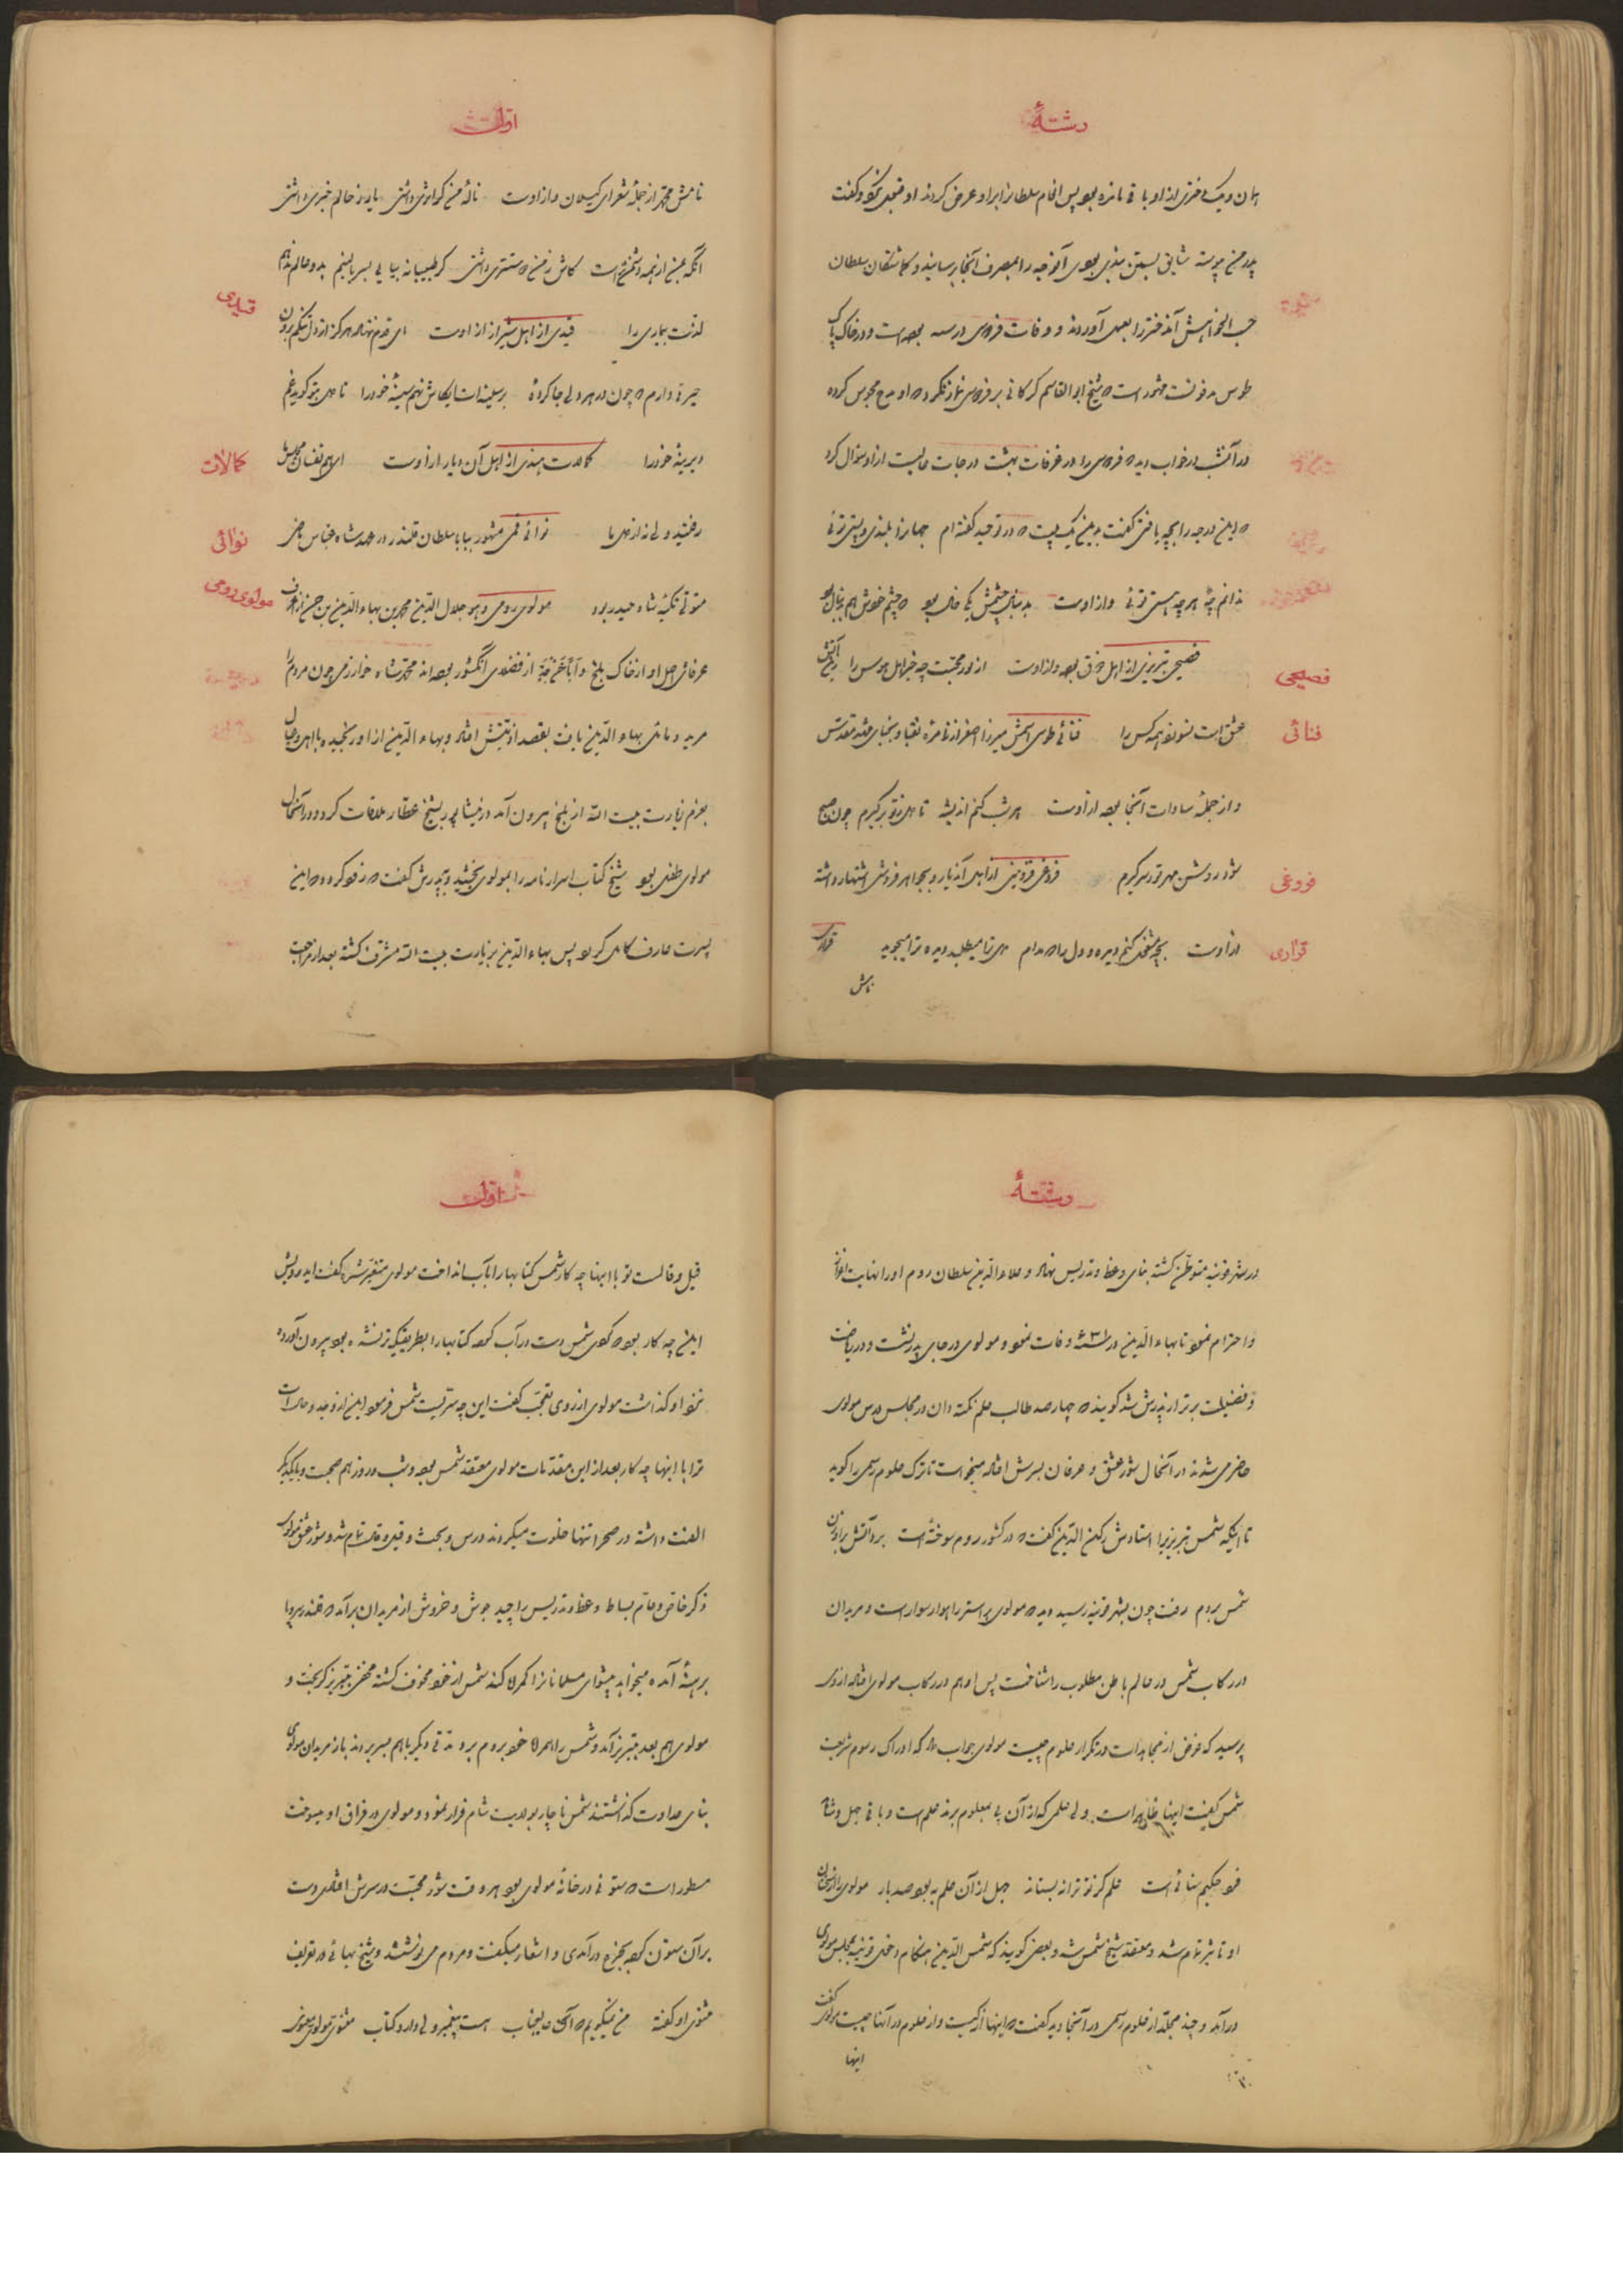 رشتهٔ
همان و یک دختری از او باقی مانده بود پس انعام سلطان را بر او عرض کردند او قبول نکرد و گفت
پدر من پیوسته شایق بستن بندی بود آن وجه را بمصرف آنجا برسانید و کماشتکان سلطان
حسب الخواهش آن دختر را بعمل آوردند و وفات فردوسی در سنه بوده است و در خاک پاک
طوس مدفونست مشهور است که شیخ ابوالقاسم کرکانی بر فردوسی نماز نکرد که او مدح مجوس کرده
در آن شب در خواب دید که فردوسی را در غرفات بهشت درجات عالیست از او سؤال کرد
که این درجه را بچه یافتی گفت بدین یک بیت که در توحید گفته‌ام جهانرا بلندی و پستی توئی
ندانم چهٔ هر چه هستی توئی و از اوست
فصیحی
فصیحی تبریزی از اهل بوده و از اوست از درد محبت چه خبر اهل هوس را
فنائی
عشق است نسوزد همه کس را فنائی طوسی اسمش میرزا اصغر از زمره نقبا و نجبای مشهد مقدس
و از جمله سادات آنجا بوده از اوست هر شب کنم اندیشه تا دل ز تو برگیرم چون صبح
فروغی
شود روشن مهر تو ز سر گیرم فروغی قزوینی از اهل آن دیار و بجواهر فروشی اشتهار داشته
قراری
از اوست بچه مشغول کنم دیده و دل را که مدام دل ترا میطلبد دیده ترا میجوید قراری
نامش
اوّلست
نامش محمّد از جملهٔ شعرای گیلان و از اوست نالهٔ من گر اثری داشتی یار ز حالم خبری داشتی
آنکه بمن از همه دشمن‌تر است کاش ز من دوستتری داشتی گر طبیبانه بیایی بسر بالینم بدو عالم ندهم
قیدی
لذّت بیماری را قیدی از اهل شیراز از اوست ای قدم ننهاده هرگز از دل تنگم برون
حیرتی دارم که چون در هر دلی جا کردهٔ بر سینه‌ات ای کاش نهم سینهٔ خود را تا دل بتو گوید غم
کالات
دیرینهٔ خود را کالات هندی از اهل آن دیار از اوست ای هم نفسان مجلس ما
نوائی
رفتید ولی نه از دل ما نوائی قمی مشهور ببابا سلطان قلندر در عهد شاه عباس ماضی
مولوی رومی
متولّی تکیهٔ شاه حیدر بود مولوی رومی و هو جلال الدّین محمد بن بهاء الدّین بن حسن
عرفای اصل او از خاک بلخ و اباً عن جدّ از فضلای آن کشور بوده‌اند محمّد شاه خوارزمی چون مردم را
مرید و مایل بهاء الدّین یافت بقصد اذیّتش افتاد و بهاء الدّین از او رنجیده با اهل و عیال
بعزم زیارت بیت الله از بلخ بیرون آمد در نیشابور بشیخ عطّار ملاقات کرد و در آن حال
مولوی طفل بود شیخ کتاب اسرار نامه را بمولوی بخشید و بپدرش گفت که زود که این
پسرت عارف کامل گردد پس بهاء الدّین بزیارت بیت الله مشرّف گشته بعد از مراجعت
رشتهٔ
در شهر قونیه متوطّن گشته بنای وعظ و تدریس نهاد و علاء الدّین سلطان روم او را نهایت اعزاز
و احترام نمود تا بهاء الدّین در ۶۳۱ وفات نمود و مولوی در جای پدر نشست و در ریاضت
و فضیلت برتر از پدرش شد گویند که چهارصد طالب علم نکته دان در مجلس درس مولوی
حاضر می‌شدند در آن حال شور عشق و عرفان بسرش افتاد میخواست تا ترک علوم رسمی را گوید
تا اینکه شمس تبریزیرا استادش رکن الدّین گفت که در کشور روم سوختهٔ است برو آتش برافروزان
شمس بروم رفت چون بشهر قونیه رسید دید که مولوی بر استر راهوار سوار است و مریدان
در رکاب شمس در عالم باطن مطلوب را شناخت پس او هم در رکاب مولوی افتاد از وی
پرسید که غرض از مجاهدات و تکرار علوم چیست مولوی جواب داد که ادراک رسوم شریعت
شمس گفت اینها ظاهر است ولی علمی که از آن پی بمعلوم برند علم است و باقی جهل و
فرد حکیم سنائی است علم کز تو ترا نه بستاند جهل از آن علم به بود صد بار مولوی را از سخنان
او تأثیر تمام شد و معتقد شیخ شمس شد و بعضی گویند که شمس الدّین هنگام دخول قونیه بمجلس مولوی
درآمد و چند مجلّد از علوم رسمی در آنجا دید گفت که اینها از کیست و از علوم در آنها چیست مولوی گفت
اینها
اوّلست
قیل و قالست تو را با اینها چه کار شمس کتابها را بآب انداخت مولوی متغیّر شد گفت ای درویش
این چه کار بود که کردی شمس دست در آب کرده کتابها را بطریقیکه تر نشده بود بیرون آورده
نزد او گذاشت مولوی از روی تعجّب گفت این چه سرّیست شمس فرمود این از وجد و حال است
ترا با اینها چه کار بعد از این مقدّمات مولوی معتقد شمس بوده و شب و روز هم صحبت و با یکدیگر
الفت داشته در صحرا تنها خلوت میکردند درس و بحث و قیل و قال تمام شد و شور عشق مولوی
ذکر خاص و عام بساط وعظ و تدریس را چید جوش و خروش از مریدان برآمد که قلندر بی سر و پا
برهنهٔ آمده میخواهد پیشوای مسلمانانرا گمراه کند شمس از خود مخوف گشته مخفی بتبریز گریخت و
مولوی هم بعد بتبریز آمد و شمس را همراه خود بروم برد مدّتی دیگر باهم بسر بردند باز مریدان مولوی
بنای عداوت گذاشتند شمس ناچار بولایت شام فرار نمود و مولوی در فراق او میسوخت
مسطور است که ستونی در خانهٔ مولوی بود هر وقت شور محبّت در سرش افتادی دست
بر آن ستون کرده بچرخ درآمدی و اشعار میگفت و مردم می‌نوشتند و شیخ بهائی در تعریف
مثنوی او گفته من نمیگویم که آن عالیجناب هست پیغمبر ولی دارد کتاب مثنوی مولوی معنوی